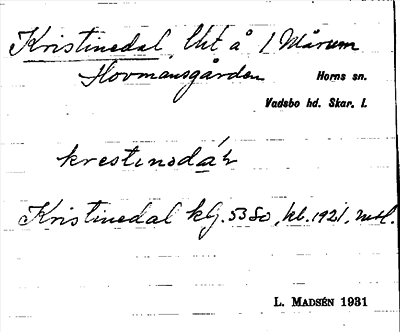 Kristinedal, lht å 1 Mårum
Hovmansgården Horns sn.
Vadsbo hd. Skar. l.
krestinsdá̱ɩ
Kristinedal klj. 5380, kb. 1921, mtl.
L. MADSÉN 1931